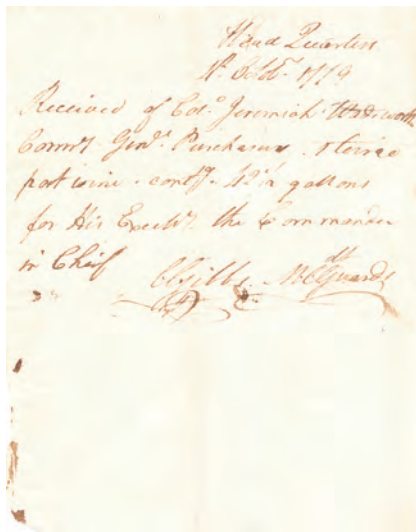 Head Quarters
1st Septr 1779
Received of Colo Jeremiah Wadsworth
Commy Genl Purchases 1 tierce
port wine contg 42½ gallons
for His Excelly the Commander
in Chief
CGibbs M Ct Guards